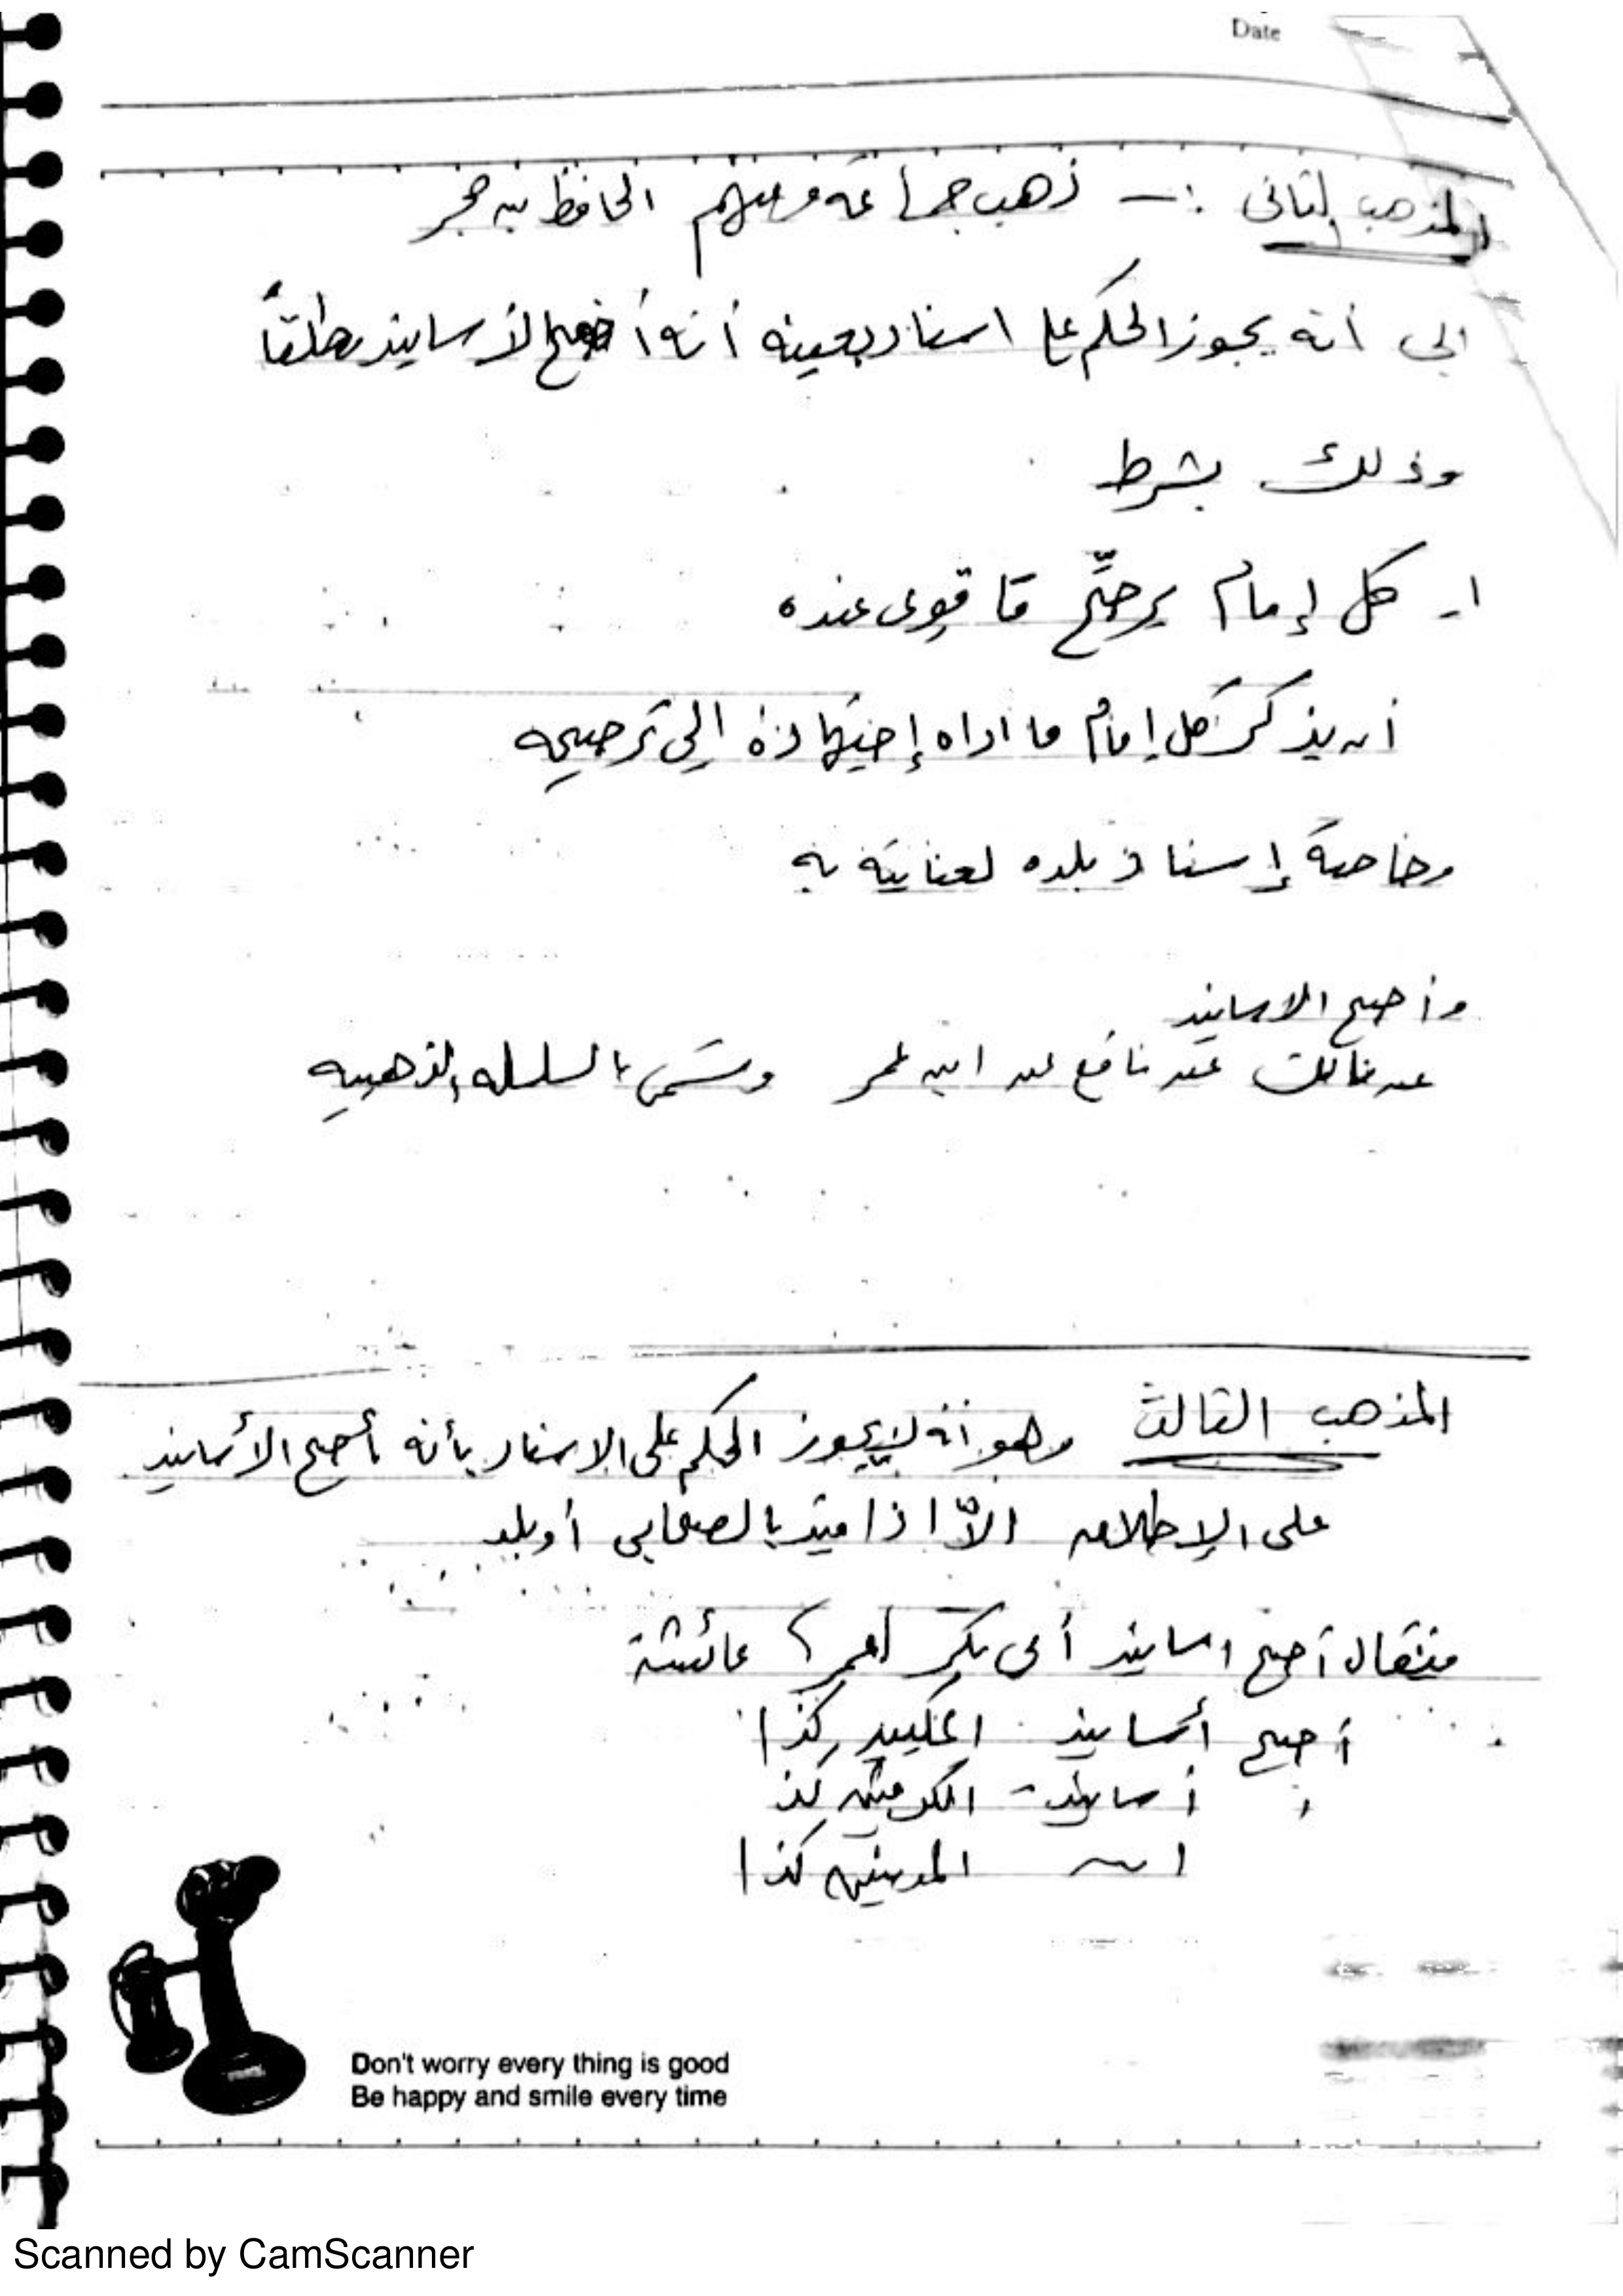 Date
المذهب الثاني :- ذهب جماعة ومنهم الحافظ بن حجر
إلى أنه يجوز الحكم على اسناد بعينه أنه أصح الأسانيد مطلقاً
وذلك بشرط
١- كل إمام يرجِّح ما قوى عنده
أن يذكر كل إمام ما اداه إجتهاده إلى ترجيحه
وخاصة إسناد بلده لعنايته به
وأصح الاسانيد
عن مالك عن نافع عن ابن عمر وتسمى بالسلسله الذهبيه
المذهب الثالث وهو أنه لا يجوز الحكم على الاسناد بأنه أصح الأسانيد
على الإطلاق الاّ اذا قيد بالصحابي أو بلد
فيقال أصح اسانيد أبى بكر أعمر؟ عائشة
أصح أسانيد المكيين كذا
أسانيد الكوفيين كذ
المدينين كذا
Don't worry every thing is good
Be happy and smile every time
Scanned by CamScanner